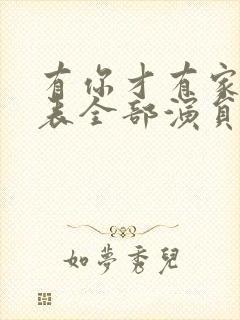 有你才有家
表全部演员
如夢秀兒